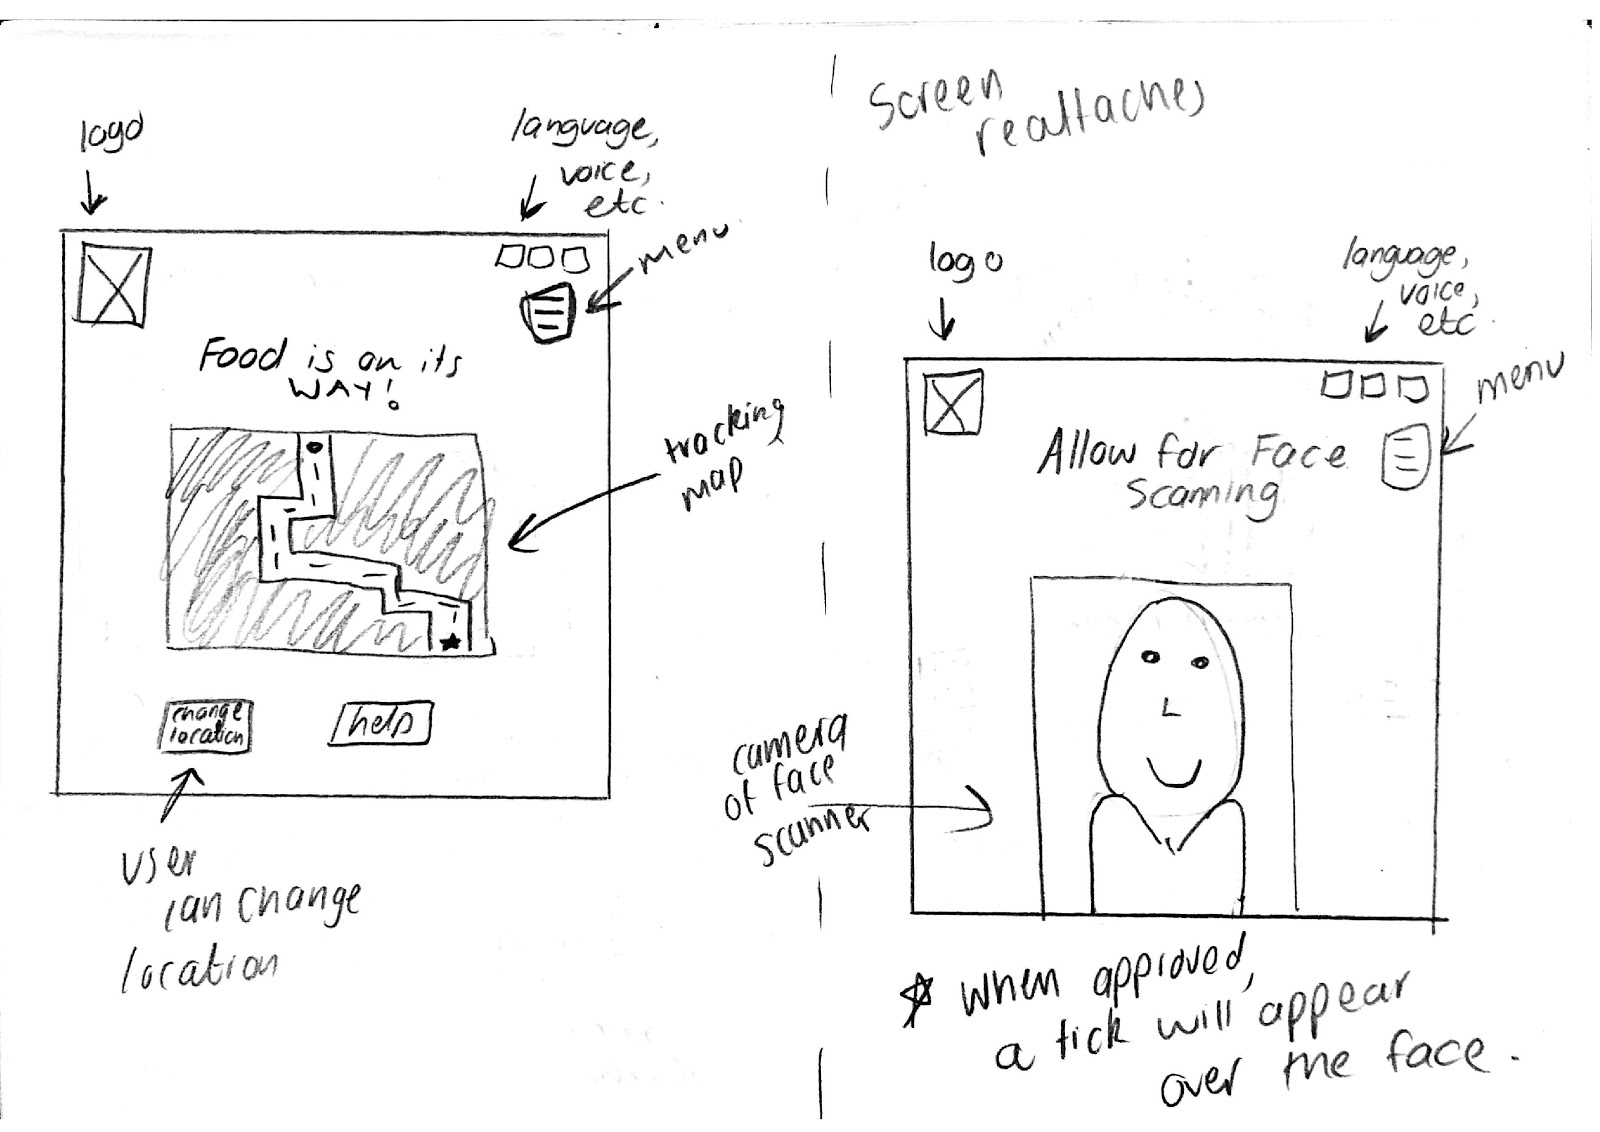 logo
language,
voice,
etc.
menu
Food is on its
WAY!
tracking
map
change
location
help
user
can change
location
Screen
reattaches
logo
language,
voice,
etc.
menu
Allow for Face
Scanning
camera
of face
scanner
When approved,
a tick will appear
over the face.